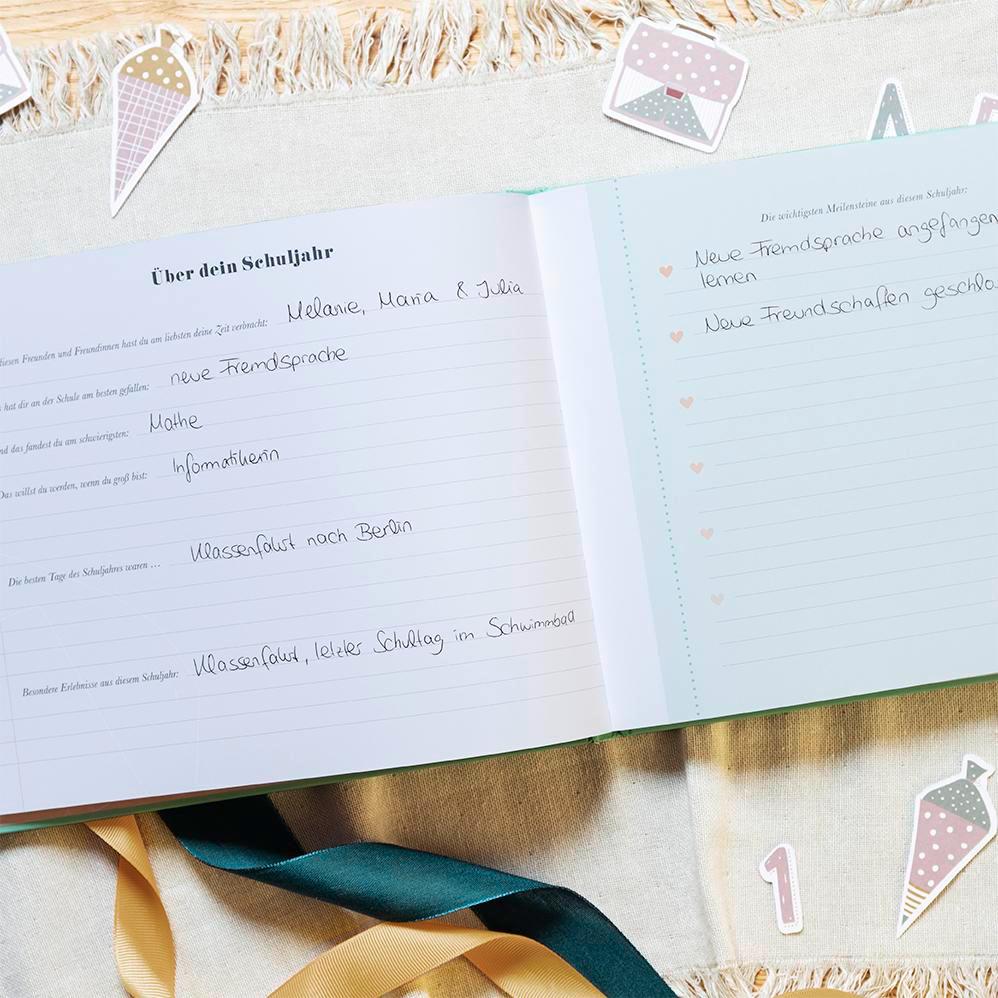 Über dein Schuljahr
diesen Freunden und Freundinnen hast du am liebsten deine Zeit verbracht: Melanie, Maria & Julia
hat dir an der Schule am besten gefallen: neue Fremdsprache
nd das fandest du am schwierigsten: Mathe
Das willst du werden, wenn du groß bist: Informatikerin
Die besten Tage des Schuljahres waren ... Klassenfahrt nach Berlin
Besondere Erlebnisse aus diesem Schuljahr: Klassenfahrt, letzter Schultag im Schwimmbad
Die wichtigsten Meilensteine aus diesem Schuljahr:
Neue Fremdsprache angefangen
lernen
Neue Freundschaften geschlo
A
1